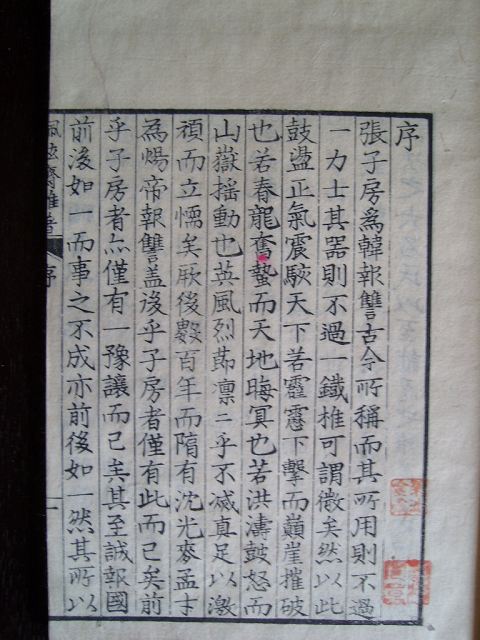 序
張子房爲韓報讐古今所稱而其所用則不過
一力士其器則不過一鐵椎可謂微矣然以此
鼓盪正氣震駭天下若霹靂下擊而巔崖摧破
也若春龍奮蟄而天地晦冥也若洪濤鼓怒而
山嶽揺動也英風烈節凛〻乎不减真足以激
頑而立懦矣厥後數百年而隋有沈光麥孟才
為煬帝報讐盖後乎子房者僅有此而已矣前
乎子房者亦僅有一豫讓而已矣其至誠報國
前後如一而事之不成亦前後如一然其所以
序
一